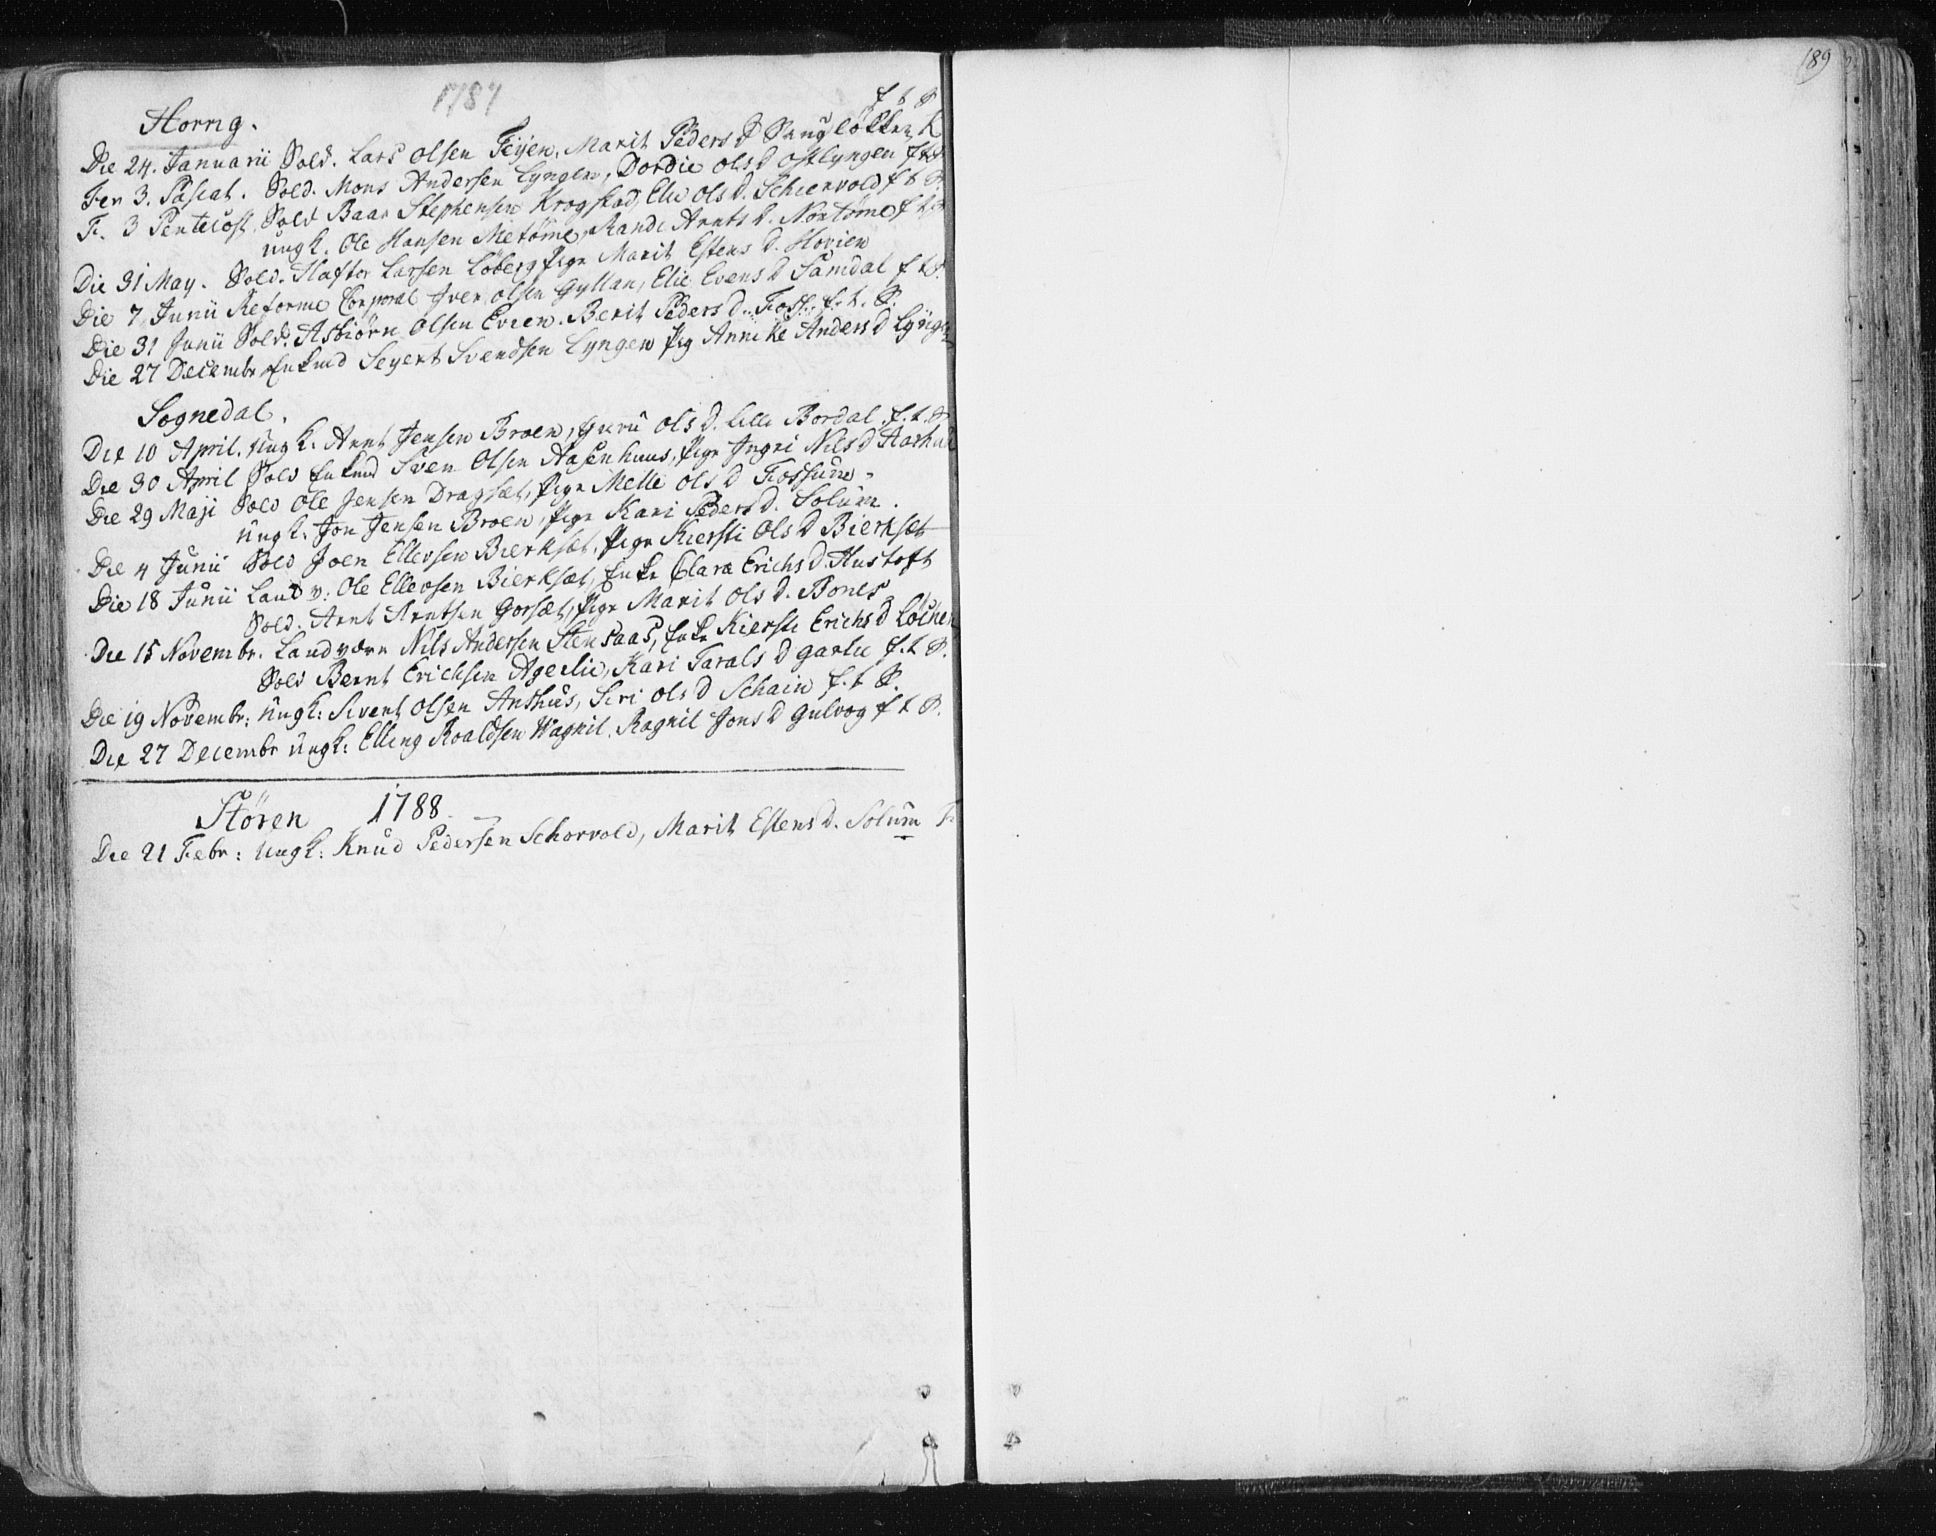 1787
Horrig.
f t P
Die 24. Januarii Sold. Lars Olsen Feijen, Marit Peders D Saugløkken K
Fer 3. Pascat. Sold. Mons Andersen Lyngen, Dordie Ols D Ostlyngen f t P
F. 3 Pentecost. Sold Baar Stephensen Krogstad, Elie Ols D. Schiervold f t P.
ungk. Ole Hansen Metöme, Rande Arnts D. Nortöme f t P
Die 31 May. Sold. Haftor Larsen Löberg Pige Marit Estens D. Hovien
Die 7 Junii Reforme Corporal Iver Olsen Gyllan, Elie Evens D Samdal f t P.
Die 31 Junii Sold. Asbiörn Olsen Evien. Berit Peders D. Foss: f. t. P.
Die 27 Decembr Enkmd Seyert Svendsen Lyngen Pig Annike Anders D Lynge
Sognedal.
Die 10 April. Ungk. Arnt Jensen Broen, Guru Ols D. Lille Bordal. f. t. P
Die 30 April Sold Enkmd Sven Olsen Aasenhuus, Pige Ingri Nils D Aarhu
Die 29 Maji Sold Ole Jensen Dragsæt, Pige Melle Ols D Fossum.
Ungk. Jon Jensen Broen, Pige Kari Peders D. Solum.
Die 4 Junii Sold Joen Ellevsen Bierksæt, Pige Kiersti Ols D Bierksæt
Die 18 Junii Land v: Ole Ellevsen Bierksæt, Enke Clara Erichs D. Hustoft
Sold. Arnt Arntsen Gorsæt, Pige Marit Ols D. Bones
Die 15 Novembr. Landværn Nils Andersen Stensaas, Enke Kiersti Erichs D Löchen
Sold Bernt Erichsen Agelie, Kari Tarals D Garlie f. t P.
Die 19 Novembr: Ungk: Sivert Olsen Anshus, Siri Ols D Schain f. t P.
Die 27 Decembr Ungk: Elling Roaldsen Wagnil. Ragnil Jons D Gulvog f t P.
Stören 1788
Die 21 Febr: Ungk: Knud Pedersen Schorvold, Marit Estens D. Solum
189